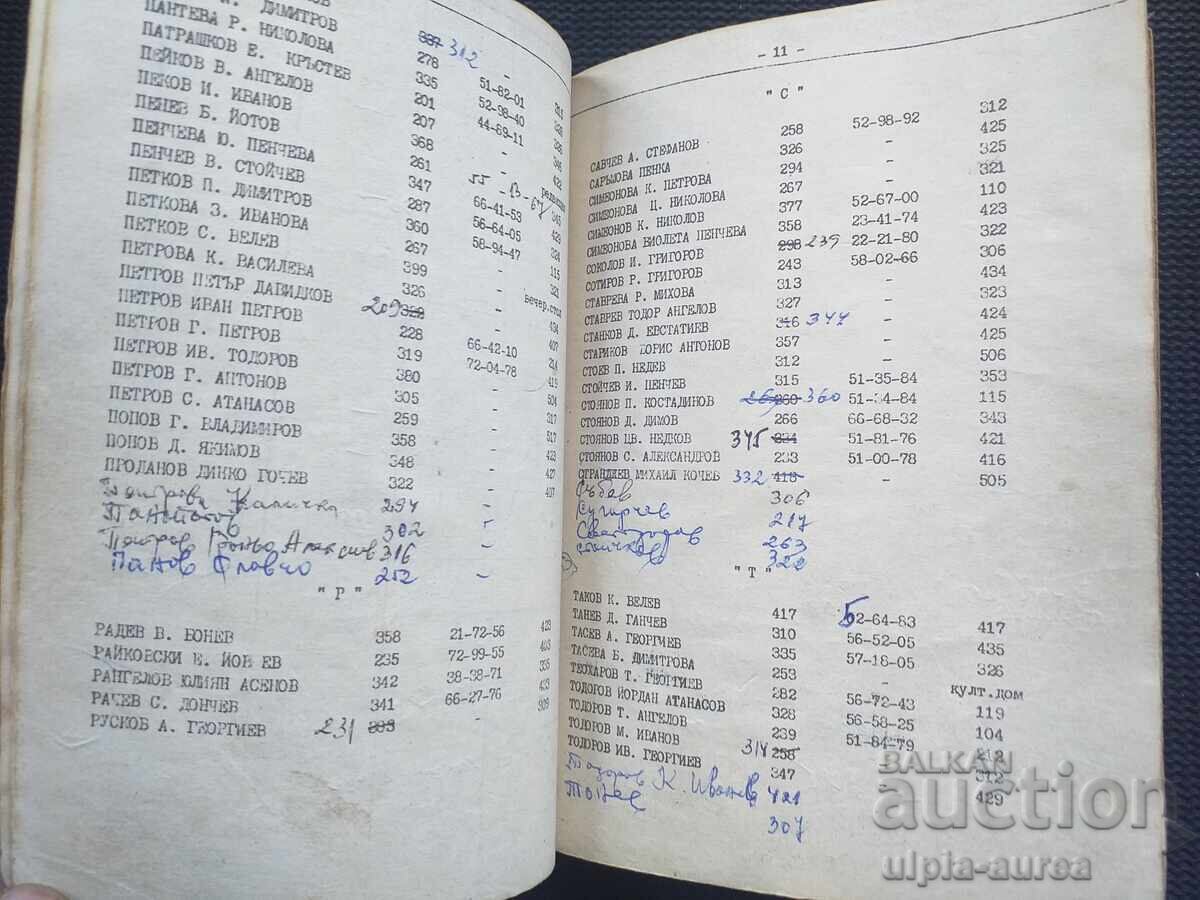 ДИМИТРОВ
ПАНТЕВА Р. НИКОЛОВА
ПАТРАШКОВ Е. КРЪСТЕВ
ПЕЙКОВ В. АНГЕЛОВ
ПЕКОВ И. ИВАНОВ
ПЕНЕВ Б. ЙОТОВ
ПЕНЧЕВА Ю. ПЕНЧЕВА
ПЕНЧЕВ В. СТОЙЧЕВ
ПЕТКОВ П. ДИМИТРОВ
ПЕТКОВА З. ИВАНОВА
ПЕТКОВ С. ВЕЛЕВ
ПЕТРОВА К. ВАСИЛЕВА
ПЕТРОВ ПЕТЪР ДАВИДКОВ
ПЕТРОВ ИВАН ПЕТРОВ
ПЕТРОВ Г. ПЕТРОВ
ПЕТРОВ ИВ. ТОДОРОВ
ПЕТРОВ Г. АНТОНОВ
ПЕТРОВ С. АТАНАСОВ
ПОПОВ Г. ВЛАДИМИРОВ
ПОПОВ Д. ЯКИМОВ
ПРОДАНОВ ДИНКО ГОЧЕВ
337 312 -
278 51-82-01
335 52-98-40
201 44-69-11
207 -
368 -
261 -
347 55-13-67
287 66-41-53
360 56-64-05
267 58-94-47
399 -
326 -
209
228 66-42-10
319 72-04-78
380 -
305 -
259 -
358 -
348 -
322 -
294 -
Панайотов 302 -
Петров Гроньо Алексиев 316
Панов Славчо 252 -
"Р"
РАДЕВ В. БОНЕВ 358 21-72-56 423
РАЙКОВСКИ Е. ЙОВЧЕВ 235 72-99-55 403
РАНГЕЛОВ ЮЛИЯН АСЕНОВ 342 38-38-71 335
РАЧЕВ С. ДОНЧЕВ 341 66-27-76 433
РУСКОВ А. ГЕОРГИЕВ 231 - 309
- 11 -
"С"
САВЧЕВ А. СТЕФАНОВ 258 52-98-92 312
САРЪМОВА ПЕНКА 326 - 425
СИМЕОНОВА К. ПЕТРОВА 294 - 325
СИМЕОНОВА Ц. НИКОЛОВА 267 - 321
СИМЕОНОВ К. НИКОЛОВ 377 52-67-00 110
СИМЕОНОВА ВИОЛЕТА ПЕНЧЕВА 358 23-41-74 423
СОКОЛОВ И. ГРИГОРОВ 298 239 22-21-80 322
СОТИРОВ Р. ГРИГОРОВ 243 58-02-66 306
СТАВРЕВА Р. МИХОВА 313 - 434
СТАВРЕВ ТОДОР АНГЕЛОВ 327 - 323
СТАНКОВ Д. ЕВСТАТИЕВ 316 347 - 424
СТАРИКОВ БОРИС АНТОНОВ 357 - 425
СТОЕВ П. НЕДЕВ 312 - 506
СТОЙЧЕВ И. ПЕНЧЕВ 315 51-35-84 353
СТОЯНОВ П. КОСТАДИНОВ 260 360 51-34-84 115
СТОЯНОВ Д. ДИМОВ 266 66-68-32 343
СТОЯНОВ ЦВ. НЕДКОВ 345 334 51-81-76 421
СТОЯНОВ С. АЛЕКСАНДРОВ 233 51-00-78 416
СТРАНДЖЕВ МИХАИЛ КОЧЕВ 332 418 - 505
Събев 306
217
263
Стоичков 322
"Т"
ТАКОВ К. ВЕЛЕВ 417 52-64-83 417
ТАНЕВ Д. ГАНЧЕВ 310 56-52-05 435
ТАСЕВ А. ГЕОРГИЕВ 335 57-18-05 326
ТАСЕВА Б. ДИМИТРОВА 253 - култ.дом
ТЕОХАРОВ Т. ГЕОРГИЕВ 282 56-72-43 119
ТОДОРОВ ЙОРДАН АТАНАСОВ 328 56-58-25 104
ТОДОРОВ Т. АНГЕЛОВ 239 51-84-79 212
ТОДОРОВ М. ИВАНОВ 314 258 - 312
ТОДОРОВ ИВ. ГЕОРГИЕВ 347 - 429
Тодоров К. Иванов 421
Тонев 307
BALKAN
auction
ulpia-aurea